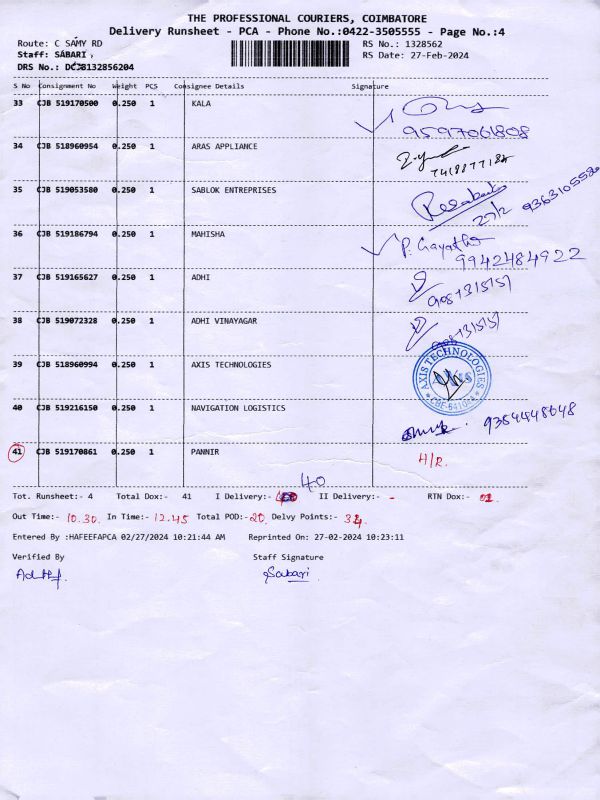 THE PROFESSIONAL COURIERS, COIMBATORE
Delivery Runsheet - PCA - Phone No.:0422-3505555 - Page No.:4
Route: C SAMY RD
Staff: SABARI
RS No.: 1328562
RS Date: 27-Feb-2024
DRS No.: DCJB132856204
S No Consignment No Weight PCS Consignee Details Signature
33 CJB 519170500 0.250 1 KALA
9597061808
34 CJB 518960954 0.250 1 ARAS APPLIANCE
35 CJB 519053580 0.250 1 SABLOK ENTREPRISES
27/2 9363105580
36 CJB 519186794 0.250 1 MAHISHA P. Gayathri
9942484922
37 CJB 519165627 0.250 1 ADHI
38 CJB 519072328 0.250 1 ADHI VINAYAGAR
39 CJB 518960994 0.250 1 AXIS TECHNOLOGIES
AXIS TECHNOLOGIES
40 CJB 519216150 0.250 1 NAVIGATION LOGISTICS
41 CJB 519170861 0.250 1 PANNIR H/R.
40
Tot. Runsheet:- 4 Total Dox:- 41 I Delivery:- II Delivery:- - RTN Dox:- 01.
Out Time:- 10.30. In Time:- 12.45 Total POD:- 20. Delvy Points:- 34.
Entered By :HAFEEFAPCA 02/27/2024 10:21:44 AM Reprinted On: 27-02-2024 10:23:11
Verified By Staff Signature
Sabari